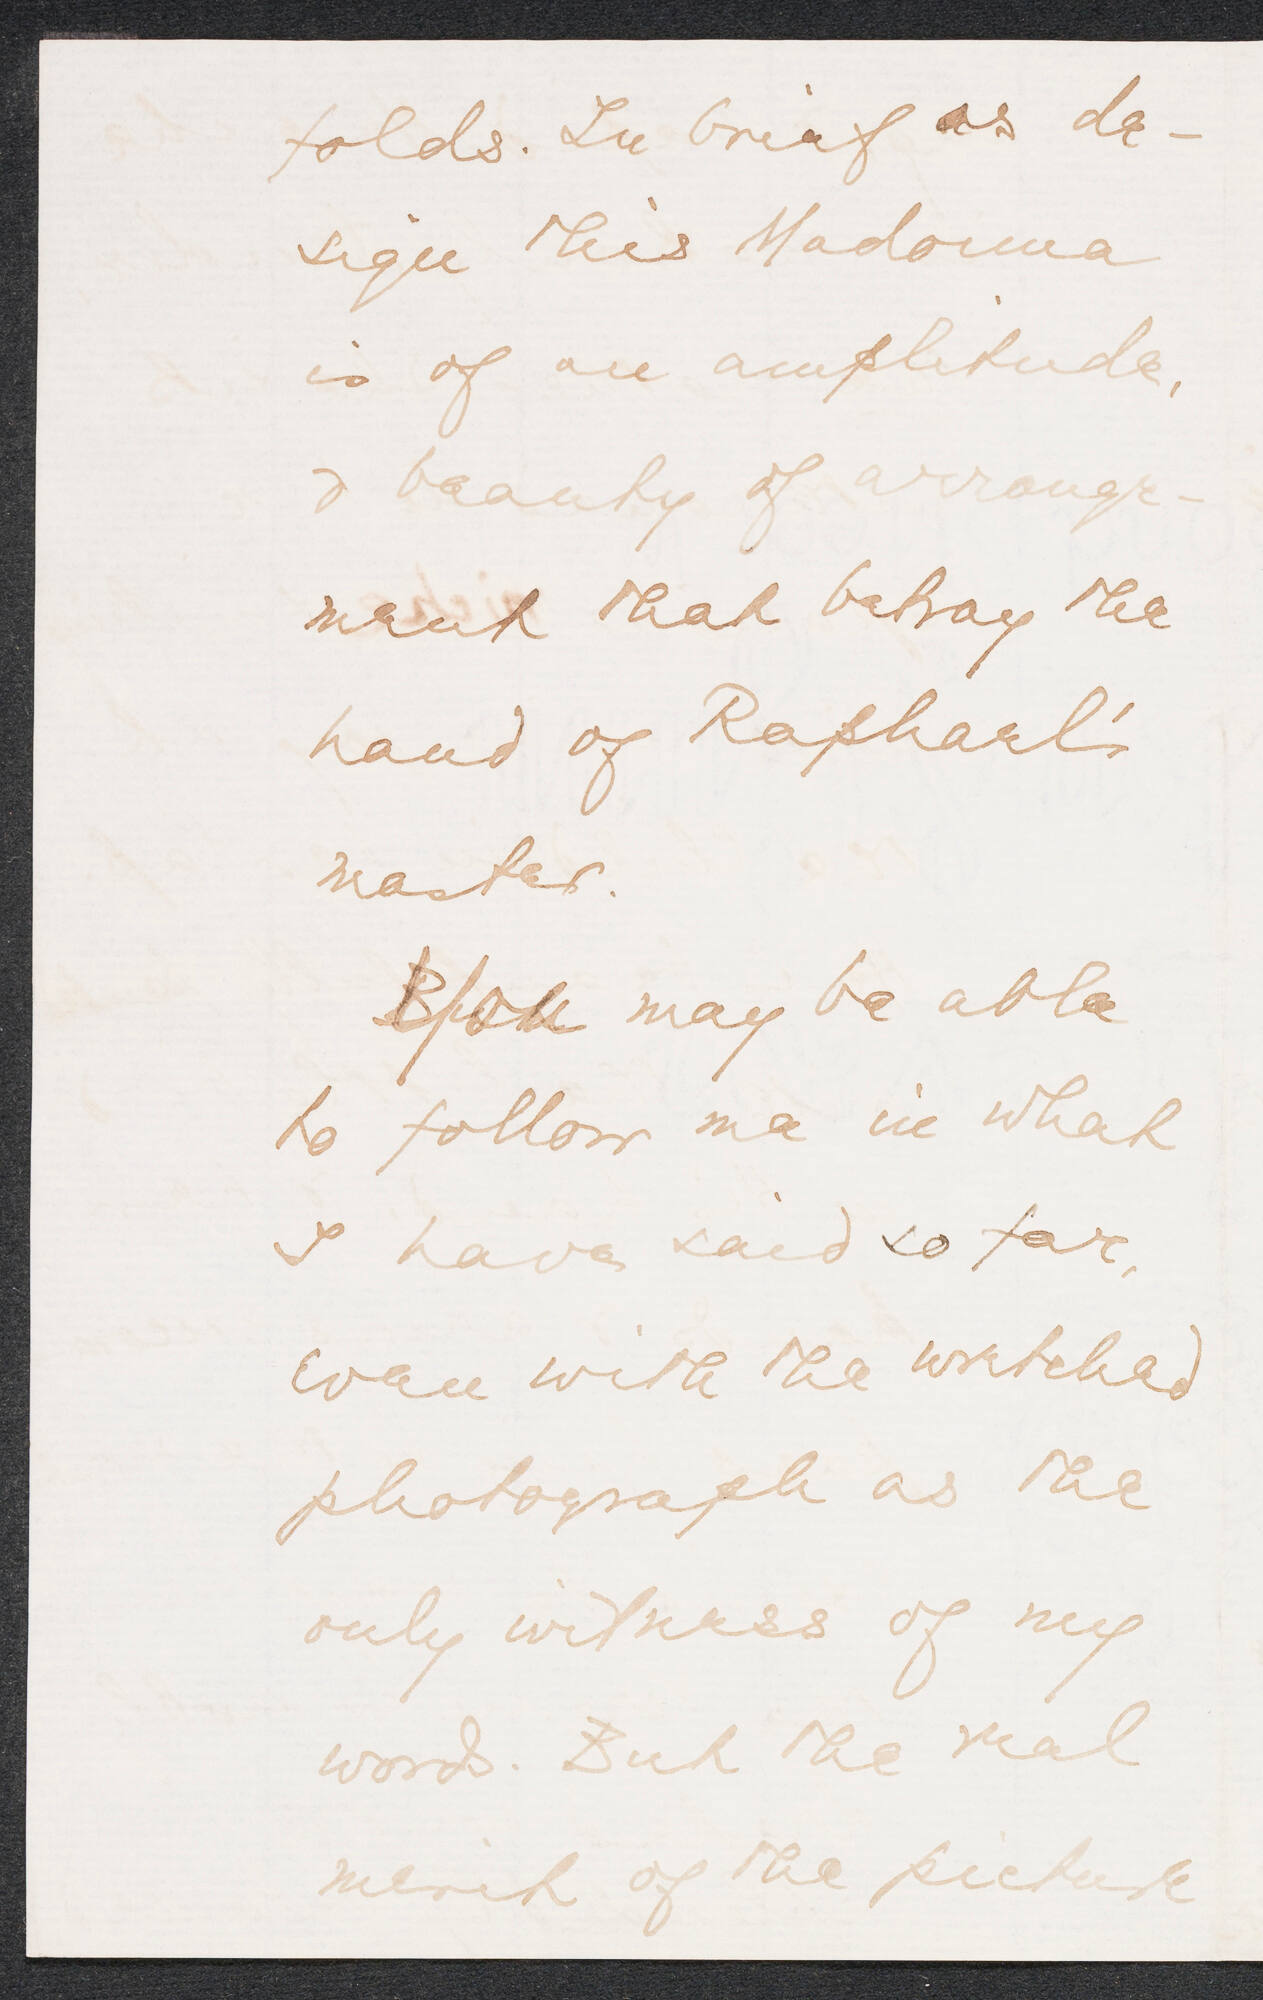 folds. In brief as de-
sign this Madonna
is of an amplitude,
& beauty of arrange-
ment that betray the
hand of Raphael's
master.
You may be able
to follow me in what
I have said so far,
even with the wretched
photograph as the
only witness of my
words. But the real
merit of the picture